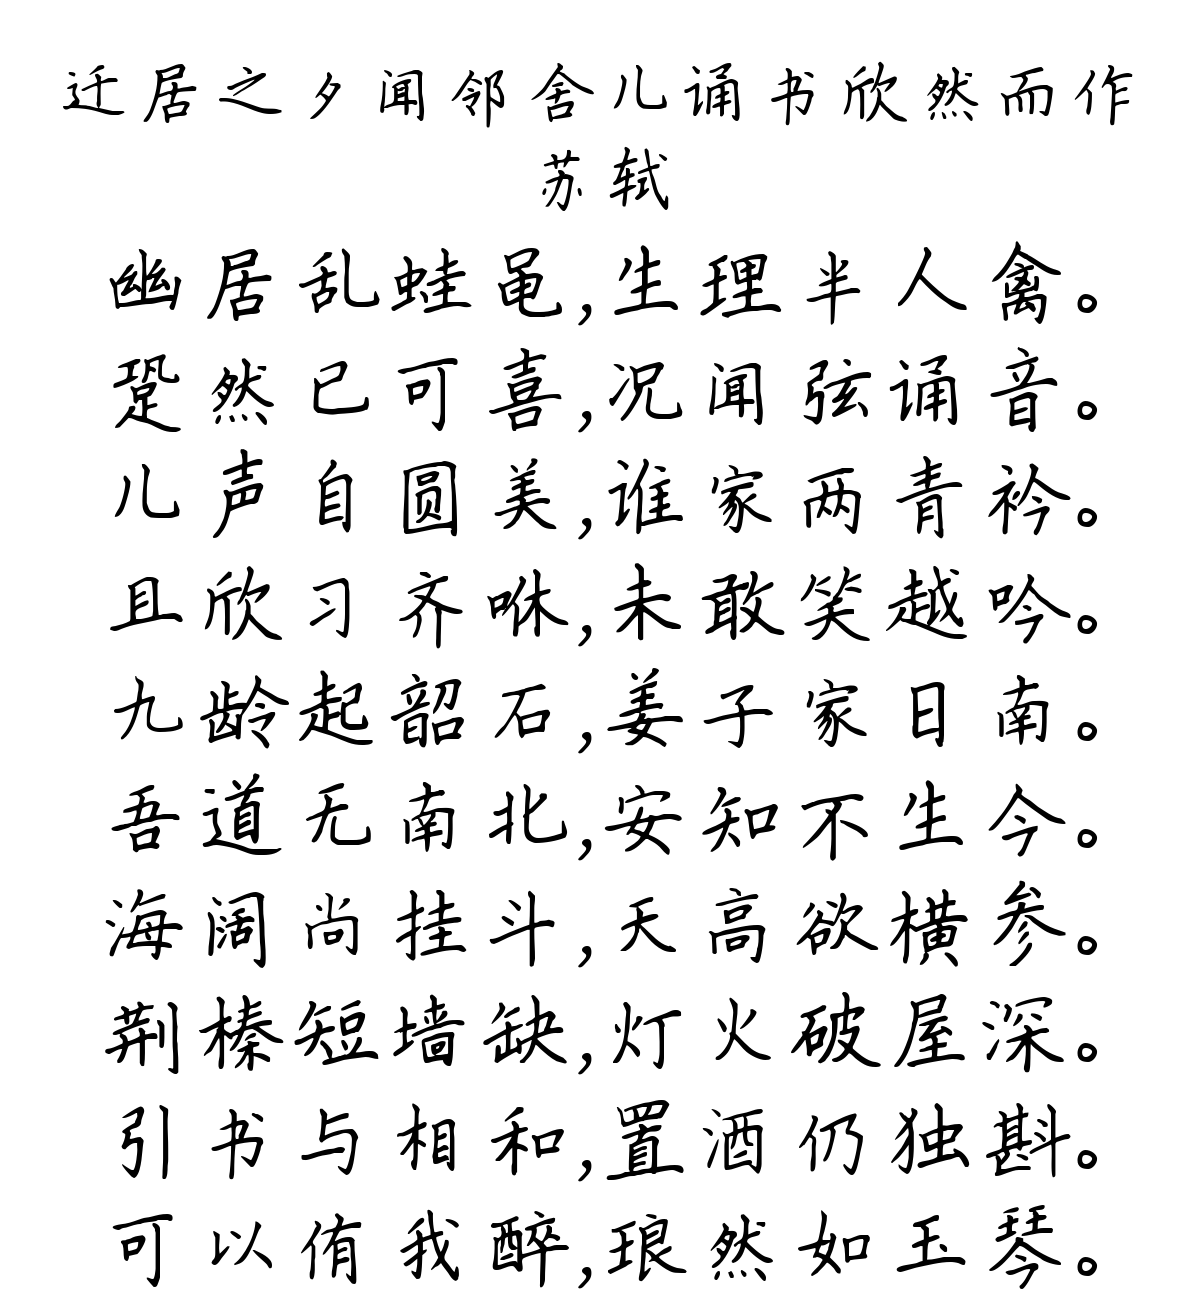 迁居之夕闻邻舍儿诵书欣然而作
苏轼
幽居乱蛙黾,生理半人禽。
跫然已可喜,况闻弦诵音。
儿声自圆美,谁家两青衿。
且欣习齐咻,未敢笑越吟。
九龄起韶石,姜子家日南。
吾道无南北,安知不生今。
海阔尚挂斗,天高欲横参。
荆榛短墙缺,灯火破屋深。
引书与相和,置酒仍独斟。
可以侑我醉,琅然如玉琴。